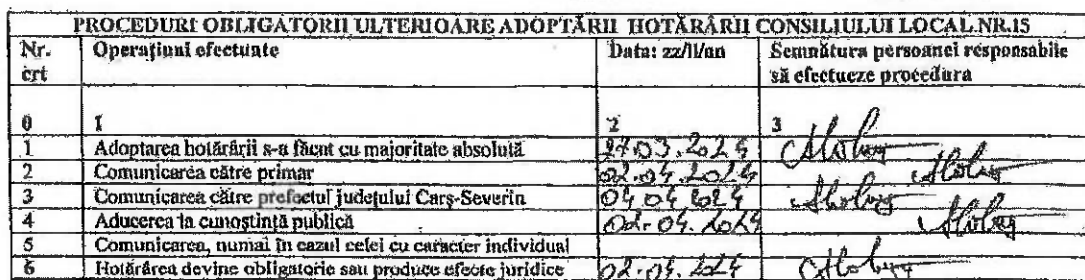 PROCEDURI OBLIGATORII ULTERIOARE ADOPTĂRII HOTĂRÂRII CONSILIULUI LOCAL NR.15
Nr. crt Operațiuni efectuate Data: zz/ll/aa Semnătura persoanei responsabile
să efectueze procedura
0 1 2 3
1 Adoptarea hotărârii s-a făcut cu majoritate absolută 27.03.2024
2 Comunicarea către primar 02.04.2024
3 Comunicarea către prefectul județului Carș-Severin 04.04.2024
4 Aducerea la cunoștință publică 02.04.2024
5 Comunicarea, numai în cazul celei cu caracter individual
6 Hotărârea devine obligatorie sau produce efecte juridice 02.04.2024